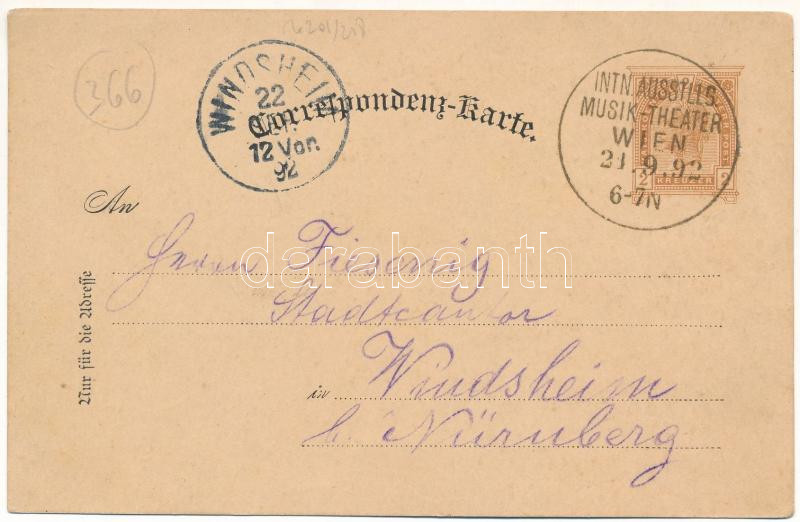 366
WINDSHEIM
22
12 Vor.
92
Correspondenz-Karte.
INTN. AUSSTLLS.
MUSIK-THEATER
WIEN
21.9.92
6-7N
2 KREUZER 2
An
Herrn
Stadtcantor
in Windsheim
b. Nürnberg
Nur für die Adresse
darabanth